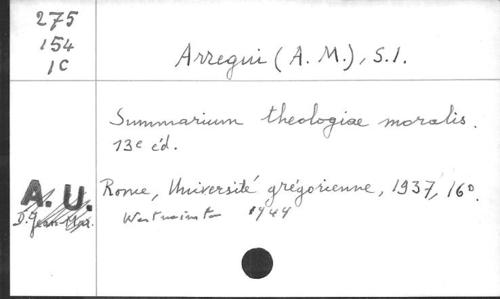 275
154
1C
Arregui (A. M.), S.I.
Summarium theologiae moralis.
13e éd.
Rome, Université grégorienne, 1937, 16°.
Westminster 1944
A. U.
D. Jean-Mar.